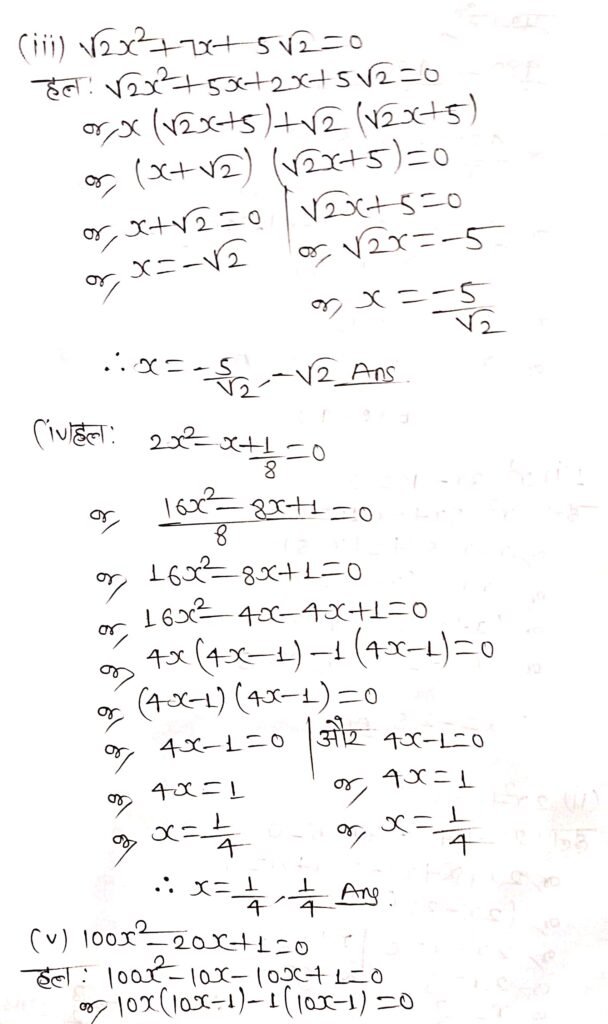 (iii) √2x²+7x+5√2=0
हल: √2x²+5x+2x+5√2=0
or, x(√2x+5)+√2(√2x+5)
or, (x+√2)(√2x+5)=0
or, x+√2=0 | √2x+5=0
or, x=-√2 | or, √2x=-5
or, x=-5/√2
∴x=-5/√2,-√2 Ans.
(iv)हल: 2x²-x+1/8=0
or, (16x²-8x+1)/8=0
or, 16x²-8x+1=0
or, 16x²-4x-4x+1=0
or, 4x(4x-1)-1(4x-1)=0
or, (4x-1)(4x-1)=0
or, 4x-1=0 | और 4x-1=0
or, 4x=1 or, 4x=1
or, x=1/4 or, x=1/4
∴ x=1/4,1/4 Ans.
(v) 100x²-20x+1=0
हल: 100x²-10x-10x+1=0
or, 10x(10x-1)-1(10x-1)=0